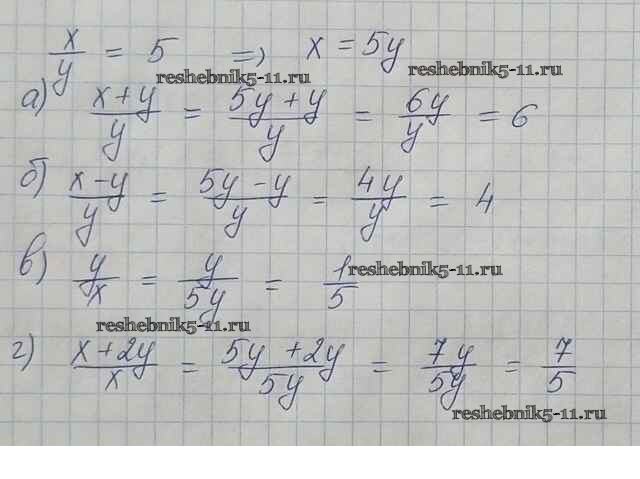 x/y = 5 => x = 5y
reshebnik5-11.ru reshebnik5-11.ru
а) (x+y)/y = (5y+y)/y = 6y/y = 6
б) (x-y)/y = (5y-y)/y = 4y/y = 4
в) y/x = y/5y = 1/5
reshebnik5-11.ru
reshebnik5-11.ru
г) (x+2y)/x = (5y+2y)/5y = 7y/5y = 7/5
reshebnik5-11.ru